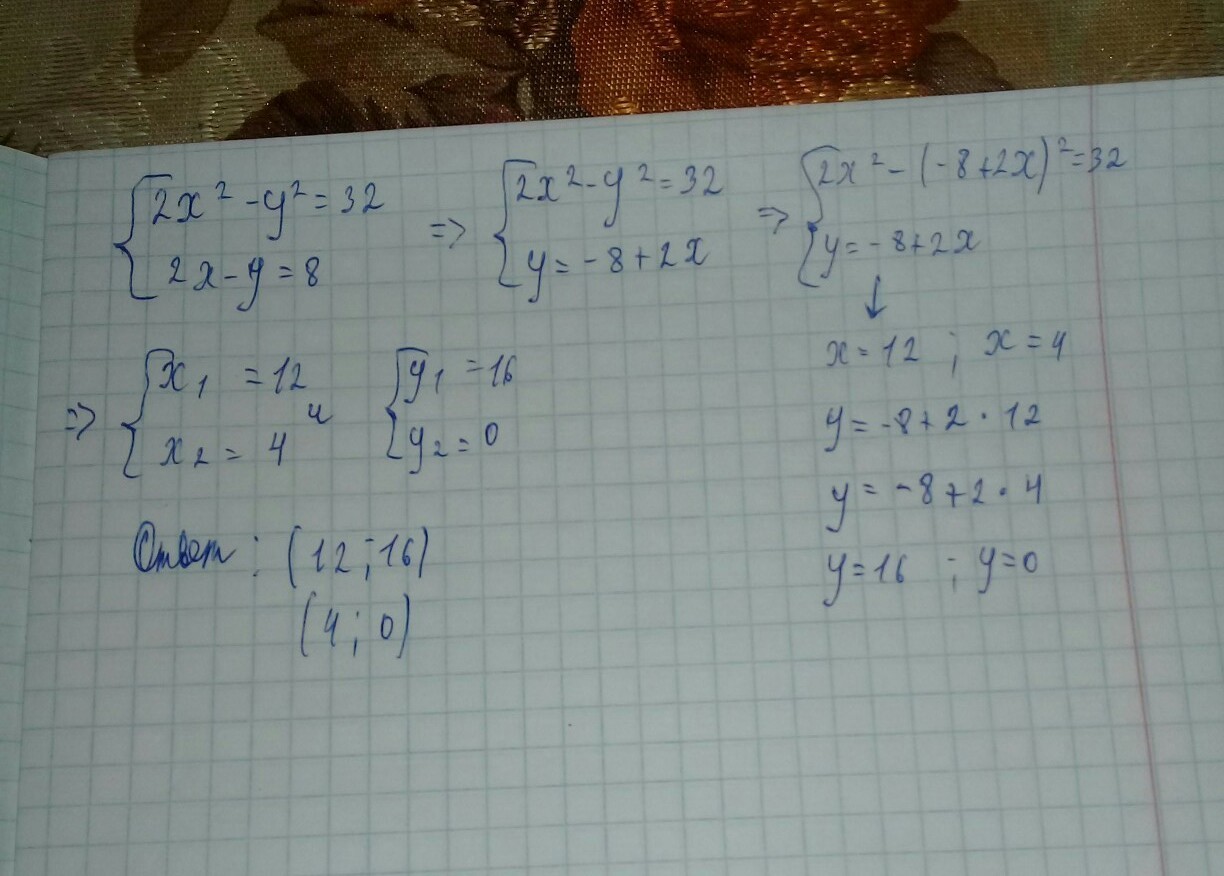 {2x² - y² = 32
2x - y = 8
=> {2x² - y² = 32
y = -8 + 2x
=> {2x² - (-8 + 2x)² = 32
y = -8 + 2x
↓
x = 12 ; x = 4
y = -8 + 2 · 12
y = -8 + 2 · 4
y = 16 ; y = 0
=> {x₁ = 12
x₂ = 4
и
{y₁ = 16
y₂ = 0
Ответ : (12 ; 16)
(4 ; 0)